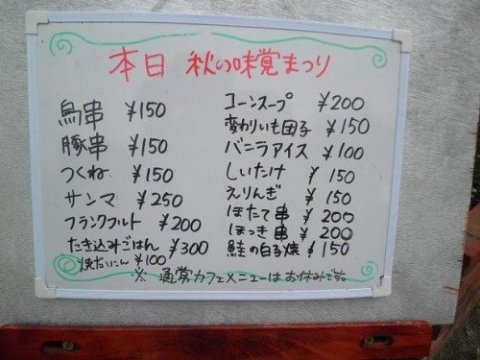 本日 秋の味覚まつり
鳥串 ¥150
豚串 ¥150
つくね ¥150
サンマ ¥250
フランクフルト ¥200
たき込みごはん ¥300
焼だいこん ¥100
コーンスープ ¥200
変わりいも団子 ¥150
バニラアイス ¥100
しいたけ ¥150
えりんぎ ¥150
ほたて串 ¥200
ほっき串 ¥200
鮭の白子焼 ¥150
※ 通常カフェメニューはお休みです